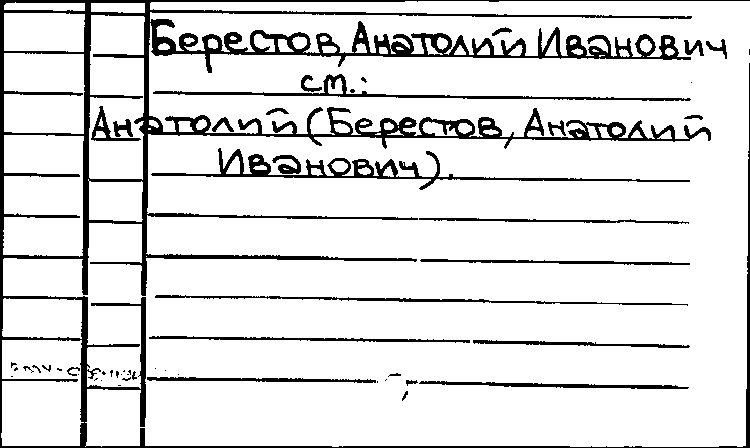 Берестов, Анатолий Иванович
см.:
Анатолий (Берестов, Анатолий
Иванович).